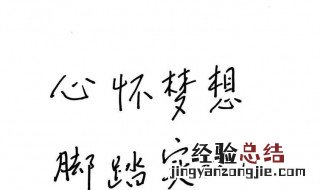 心怀梦想
脚踏实
经验总结
jingyanzongjie.com